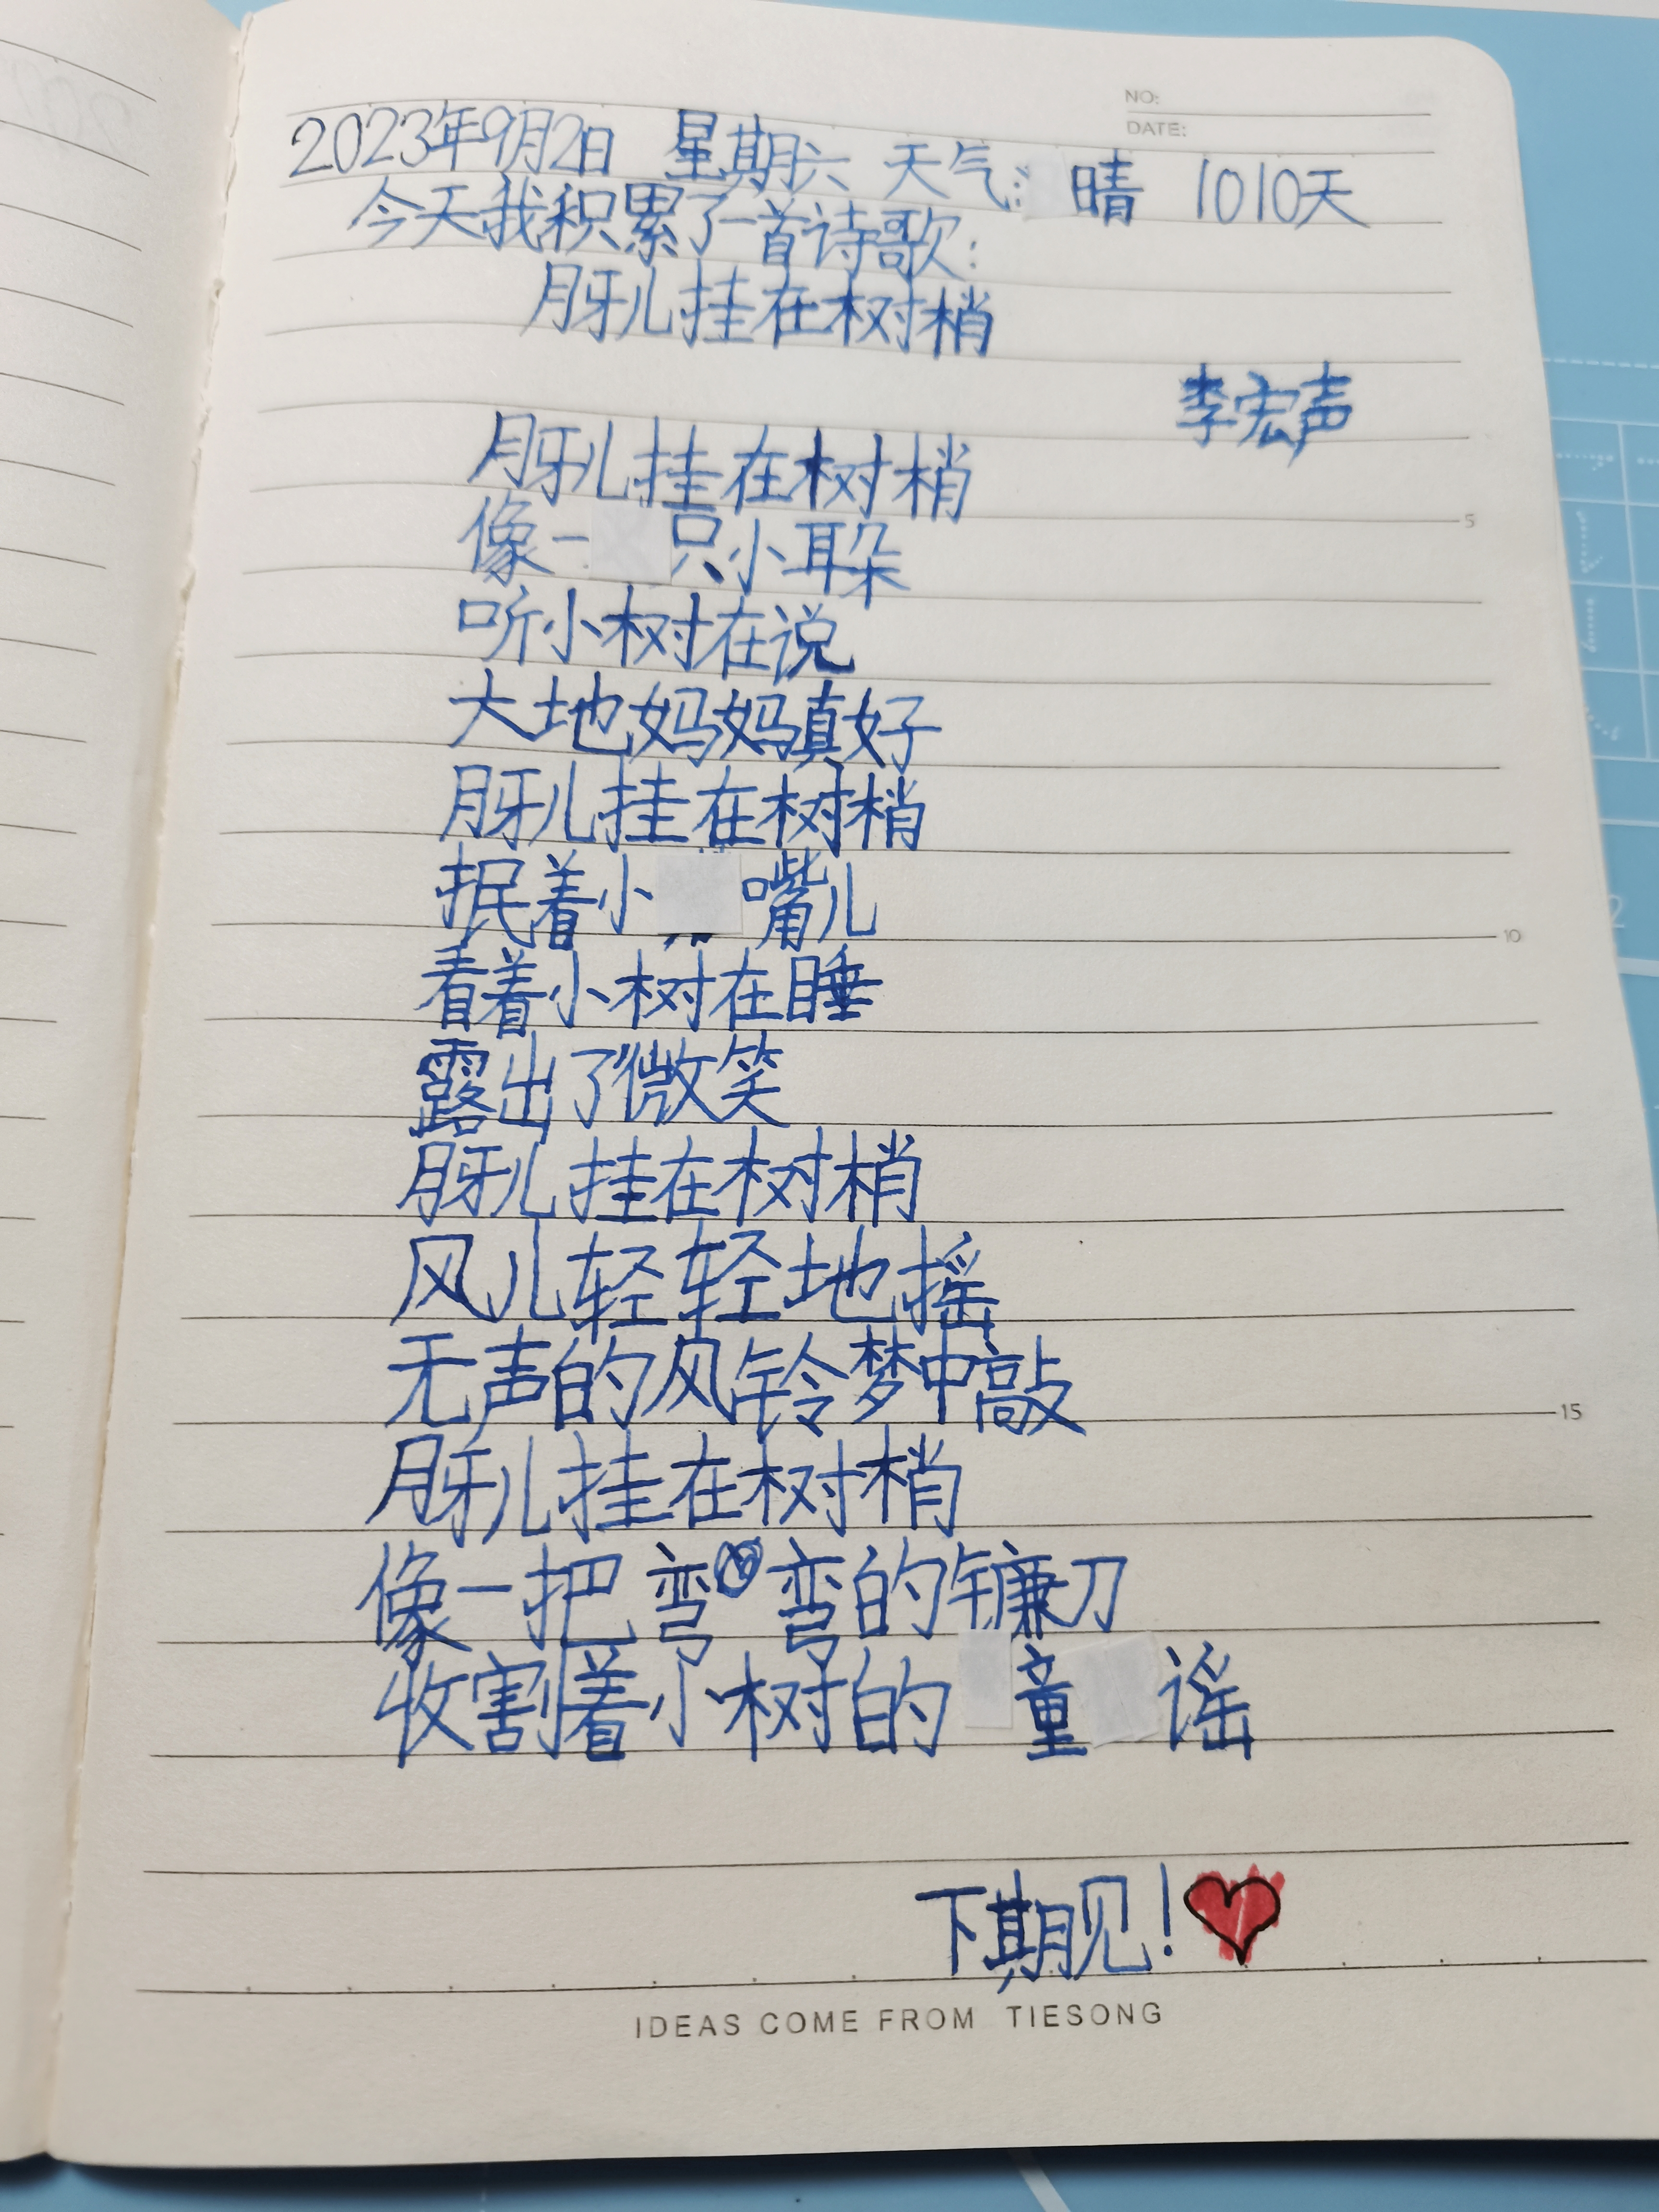 NO:
DATE:
2023年9月2日 星期六 天气: 晴 1010天
今天我积累了一首诗歌:
月牙儿挂在树梢
李宏声
月牙儿挂在树梢
像一只小耳朵
听小树在说
大地妈妈真好
月牙儿挂在树梢
抿着小嘴儿
看着小树在睡
露出了微笑
月牙儿挂在树梢
风儿轻轻地摇
无声的风铃梦中敲
月牙儿挂在树梢
像一把弯弯的镰刀
收割着小树的童谣
下期见!
IDEAS COME FROM TIESONG
5
10
15